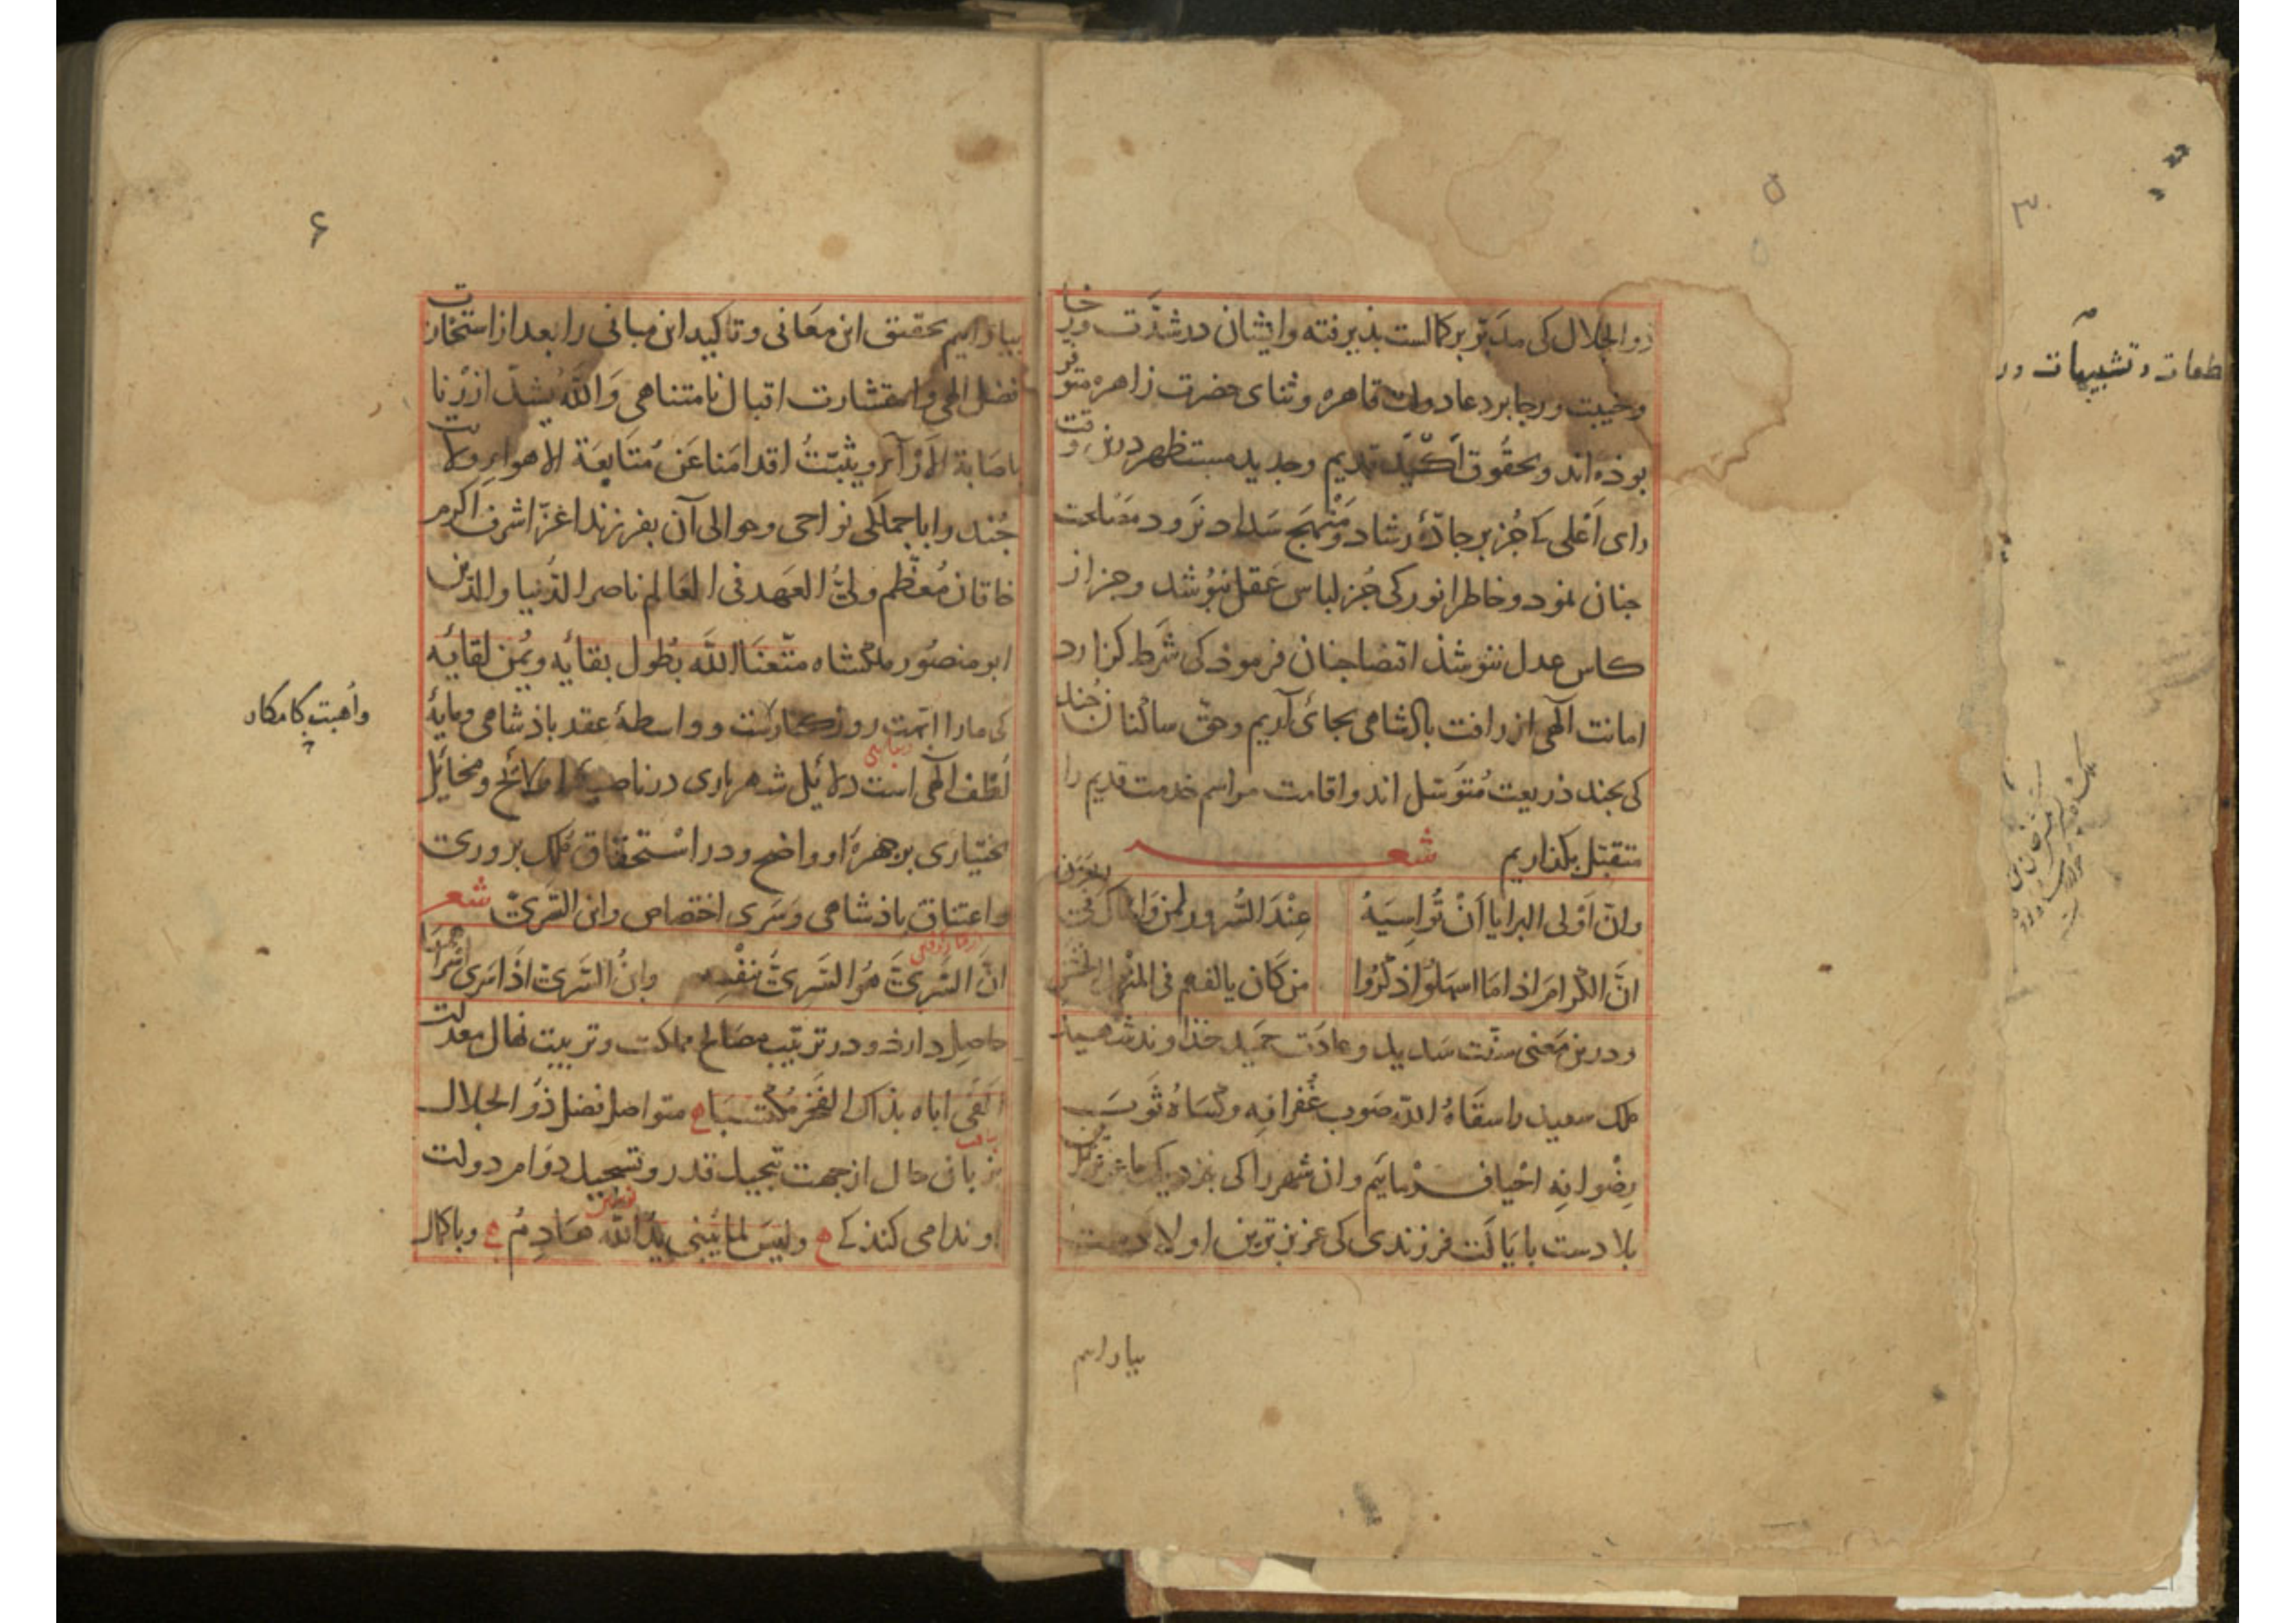 ۵
ذو الجلال کی مدبّر بر کمالست بذیرفته وایشان در شدّت ورخا
وخیبت ورجا بر دعا دولت قاهره وثنای حضرت زاهره متوفر
بوذه اند وبحقوق اکید قدیم وجدید مستظهر درین وقت
رای اَعْلی کے جُز بر جادّۀ رشاد ومَنْهَج سَداد نَرود مصلحت
جنان نمود وخاطر انور کی جُز لباس عَقل نبُوشد وجز از
کاس عدل ننوشذ اقتضا جنان فرموذ کی شَرط کزارد
امانت الٓهی از رافت باذشاهی بجائ آریم وحقّ ساکنان جُند
کی بجند ذریعت مُتَوسّل اند واقامت مراسم خدمت قدیم را
متقبّل بکذاریم شعر
وانّ اَوْلی البرایا اَنْ تُواسِیَهُ عِنْدَ السُّرور لمن واساک فی الحَزَن
انَّ الکرامَ اذا مَا اسهلوُا ذکرُوا من کَان یالفهم فی المنزل الخشن
ودرین مَعنی سنّت سَدید وعادَت حمَید خذاوند شهید
ملک سعید را سقَاهُ اللّه صَوب غُفرانِه وکسَاهُ ثَوبَ
رِضْوانِه احْیا فرمائیم وان شهر را کی بنزدیک ما عزیزترین
بلادست بایَالَت فرزندی کی عزیزترین اولادست
بیاراییم
۶
بیاراییم تحقیق این معَانی وتاکید این مبانی را بعد از استخارت
فضل الهی واستشارت اقبال نامتناهی وَاللّهُ یشدّ ازْرنا
باصَابة الاَرآء ویثبّتُ اقدامَنا عَن مُتَابعَة الاهواء ولایت
جُند را باجملکی نواحی وحوالی آن بفرزند اعَزّ اشرف اکرم
خاقان مُعظّم ولیّ العهد فی العَالم ناصر الدُّنیا والدّین
ابو منصُور ملکشاه متّعنَا اللّه بطُول بقائه ویُمن لقائه
کی مارا اتمّت روزکارست وواسطۀ عقد باذشاهی ومایۀ
لُطْف الٓهی است دلائل شهریاری در ناصیۀ او لائح ومخائل
بختیاری بر جهرۀ او واضح ودر استحقاق مُلک بروری
واعتناق باذشاهی وسَری اختصاص وابن السَّریّ شعر
انَّ السَّریَّ هُوَ السَّریُّ بنفْسِه وابنُ السَّریّ اذَا سَری اَسْراهُما
حاصِل دارذ ودر ترتیب مصَالح مملکت وتربیت نهال معدلت
اَلفَی اباه بذاک الفَخر مُکتسبَا ع متواصل فضل ذوُ الجلال
بزبان حال از جهت تبجیل قدر وتسجیل دَوام دولت
او ندا می کنذ کے ع ولیسَ لما یَبْنی یدُ اللّه هَادِمُ ع وباکمال
۳
طعات وتشبیهات در